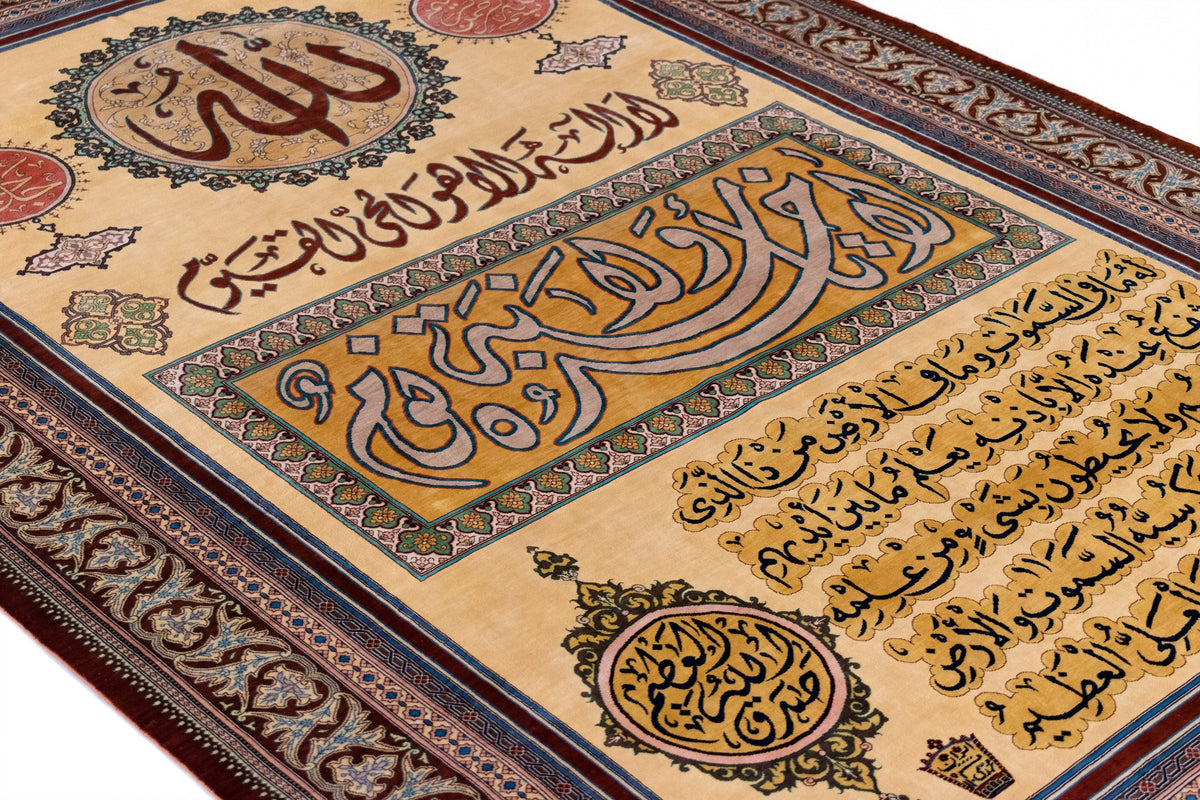 الله
الله لا إله إلا هو الحي القيوم
لا تأخذه سنة ولا نوم
له ما في السموات وما في الأرض من ذا الذي
عنده إلا بإذنه يعلم ما بين أيديهم
ولا يحيطون بشيء من علمه
كرسيه السموت والأرض
العلي العظيم
صدق الله العلي العظيم